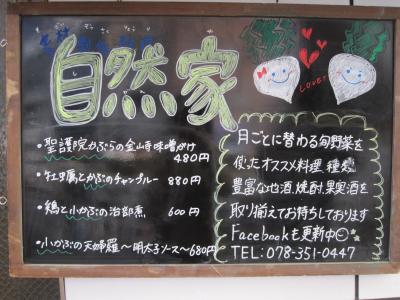 じ ねん や
自然家
LOVE!!
・聖護院かぶらの金山寺味噌がけ
480円
・牡蠣とかぶのチャンプルー 880円
・鶏と小かぶの治部煮 600円
・小かぶの天婦羅〜明太子ソース〜680円
月ごとに替わる旬野菜を
使ったオススメ料理、種類
豊富な地酒、焼酎、果実酒を
取り揃えてお待ちしております
Facebookも更新中
TEL:078-351-0447